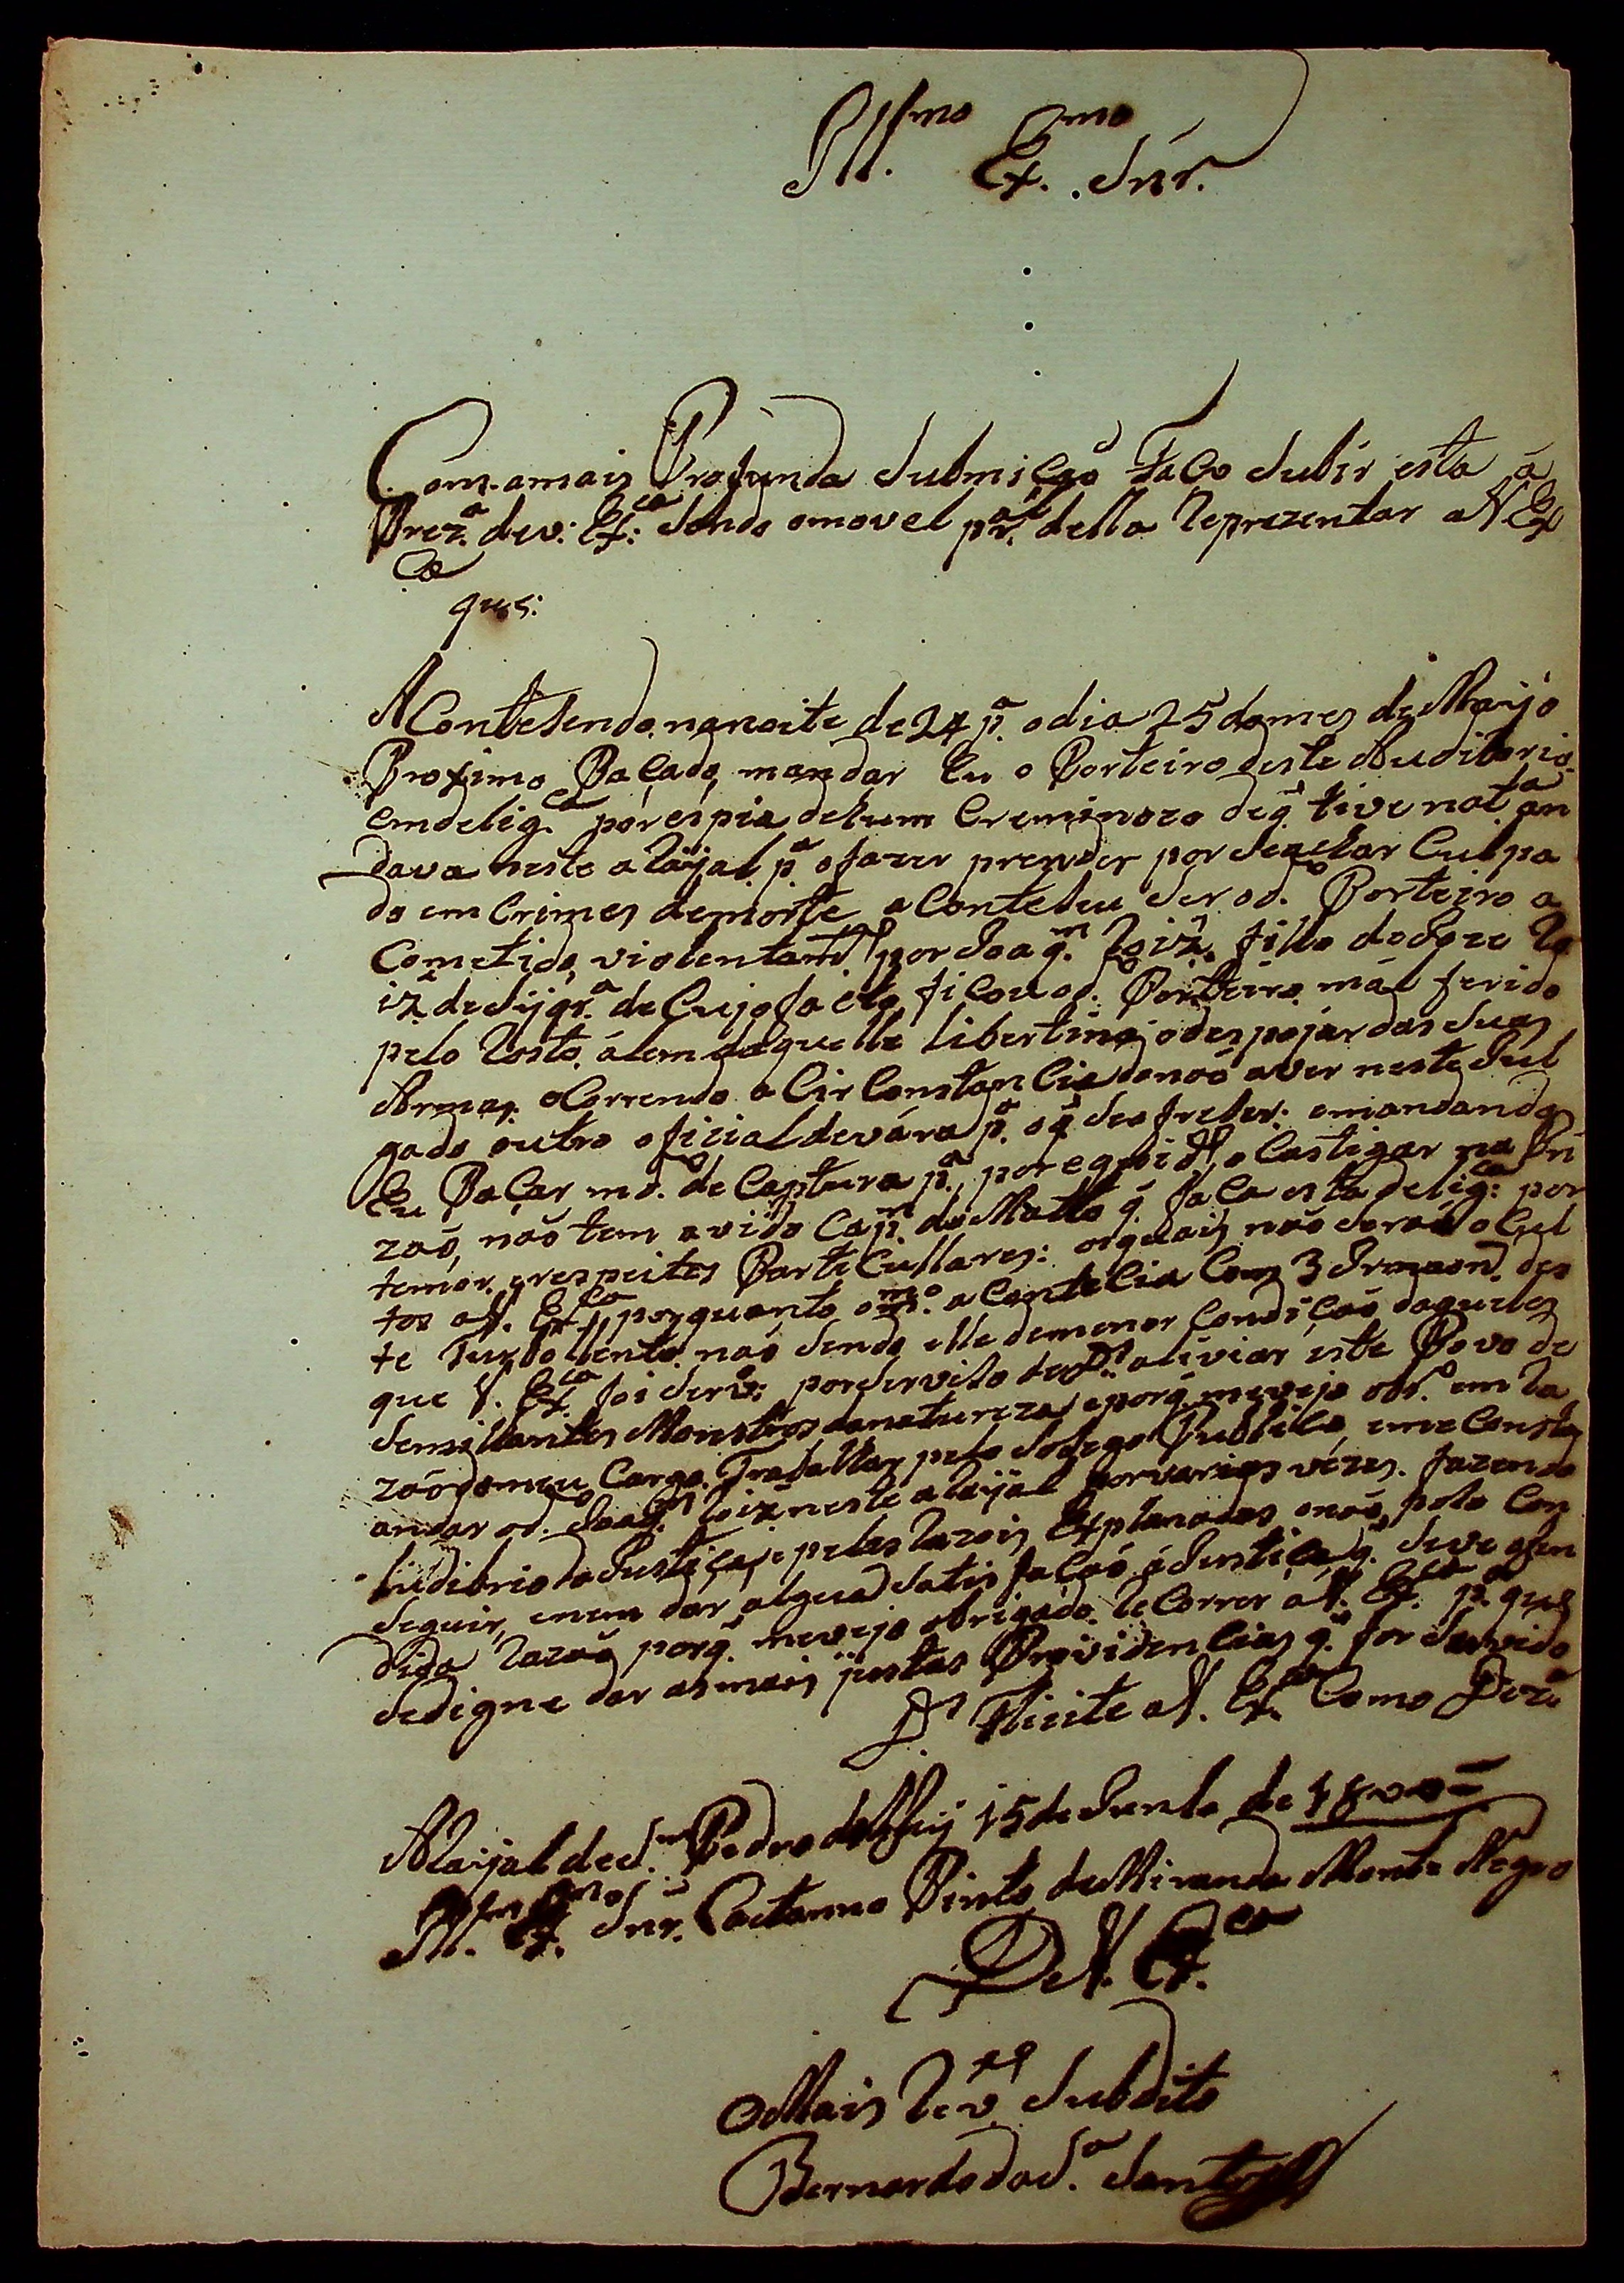 Ill.mo Ex.mo Snr.
Com amais Profunda Submiçaõ Faço Subir esta á
Prez.a de v: Ex.ca Sendo omovel p.al della Reprezentar a V Ex
Ca
que:
AContesendo na noite de 24 p.a o dia 25 do mes de Maijo
Proximo Paçado, mandar Eu o Porteiro deste Auditorio
em delig.ca por espia de hum Creminozo de q̃ tive not.a an
dava neste aRaijal p.a o fazer prender por Se achar Culpa
do em Crimes de morte aConteseu Ser o d.o Porteiro a
Cometido violentam.te por Joaq.m Roiz. filho de Joze Ro
iz de Siqr.a de Cujo facto ficou o d.o Porteiro mál ferido
pelo Rosto, álem daquelle libertino o despojar das Suas
Armas. oCorrendo a CirConstanCia de naõ aver neste Jul
gado outro oficial de vára p.a o q̃ Se ofreser: e mandando
Eu Paçar m.do de Captura p.a por eq̃ Castigar na Pri
zaõ, naõ tem avido Cap.m do Matto q̃ faCa esta delig.ca por
temor, e respeites PartiCullares: os quais naõ Seraõ oCul
tos a V. Ex.ca porquanto o m.mo aContesia Com 3 Irmaons des
te Turbollento, naõ Sendo elle de menor Condiçaõ daqueles
que V. Ex.ca foi Serv.o por Serviso de D.s aliviar este Povo de
Semilhantes Monstros da natureza, e porq̃ me vejo obr.o em Ra
zaõ do meu Cargo Trabalhar pelo Sosego Publico, e me Consta
andar o d.o Joaq.m Roiz neste aRaijal por varias vezes. fazendo
ludibrio da Justiça, e pelas Razois Explanadas o naõ, poso Con
Seguir, e nem dar algua Satisfaçaõ á Justiça q̃ Se ve ofen
dida Razaõ porq̃ me vejo obrigado ReCorrer a V. Ex.ca p.a que
Se digne dar as mais justas Providencias q̃ for Servido
D.s Filicite a V. Ex.ca Como Dezº
ARaijal de S.m Pedro del Rey 15 de Junho de 1800
Ill.mo Ex.mo Snr. Caetanno Pinto de Miranda Monte Negro
De V. Ex.ca
O Mais Rev.te Subdito
Bernardo da S.a Santos